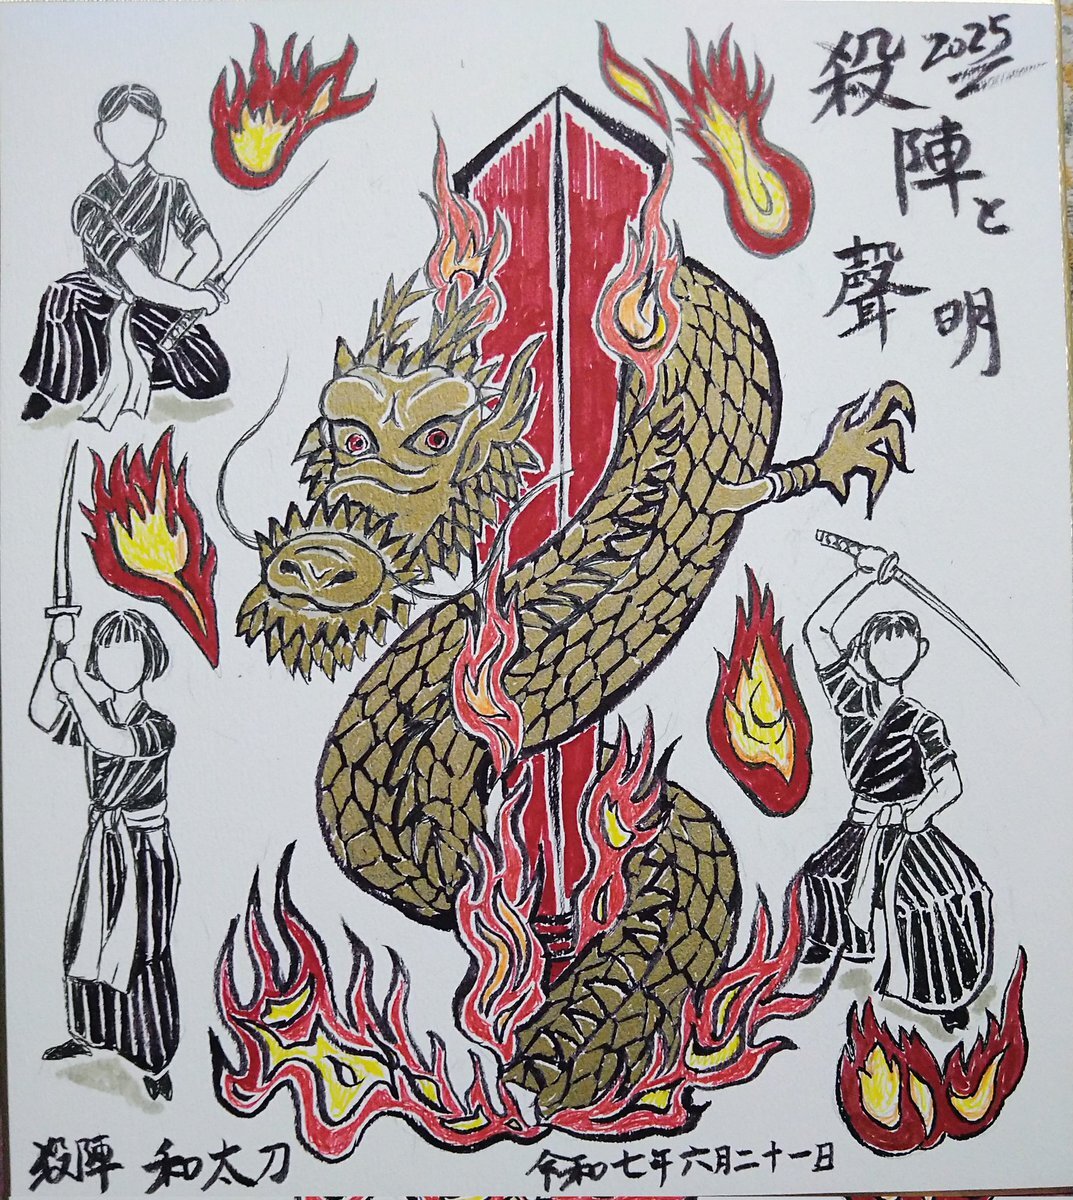 殺陣と 2025
聲明
殺陣 和太刀
令和七年六月二十一日